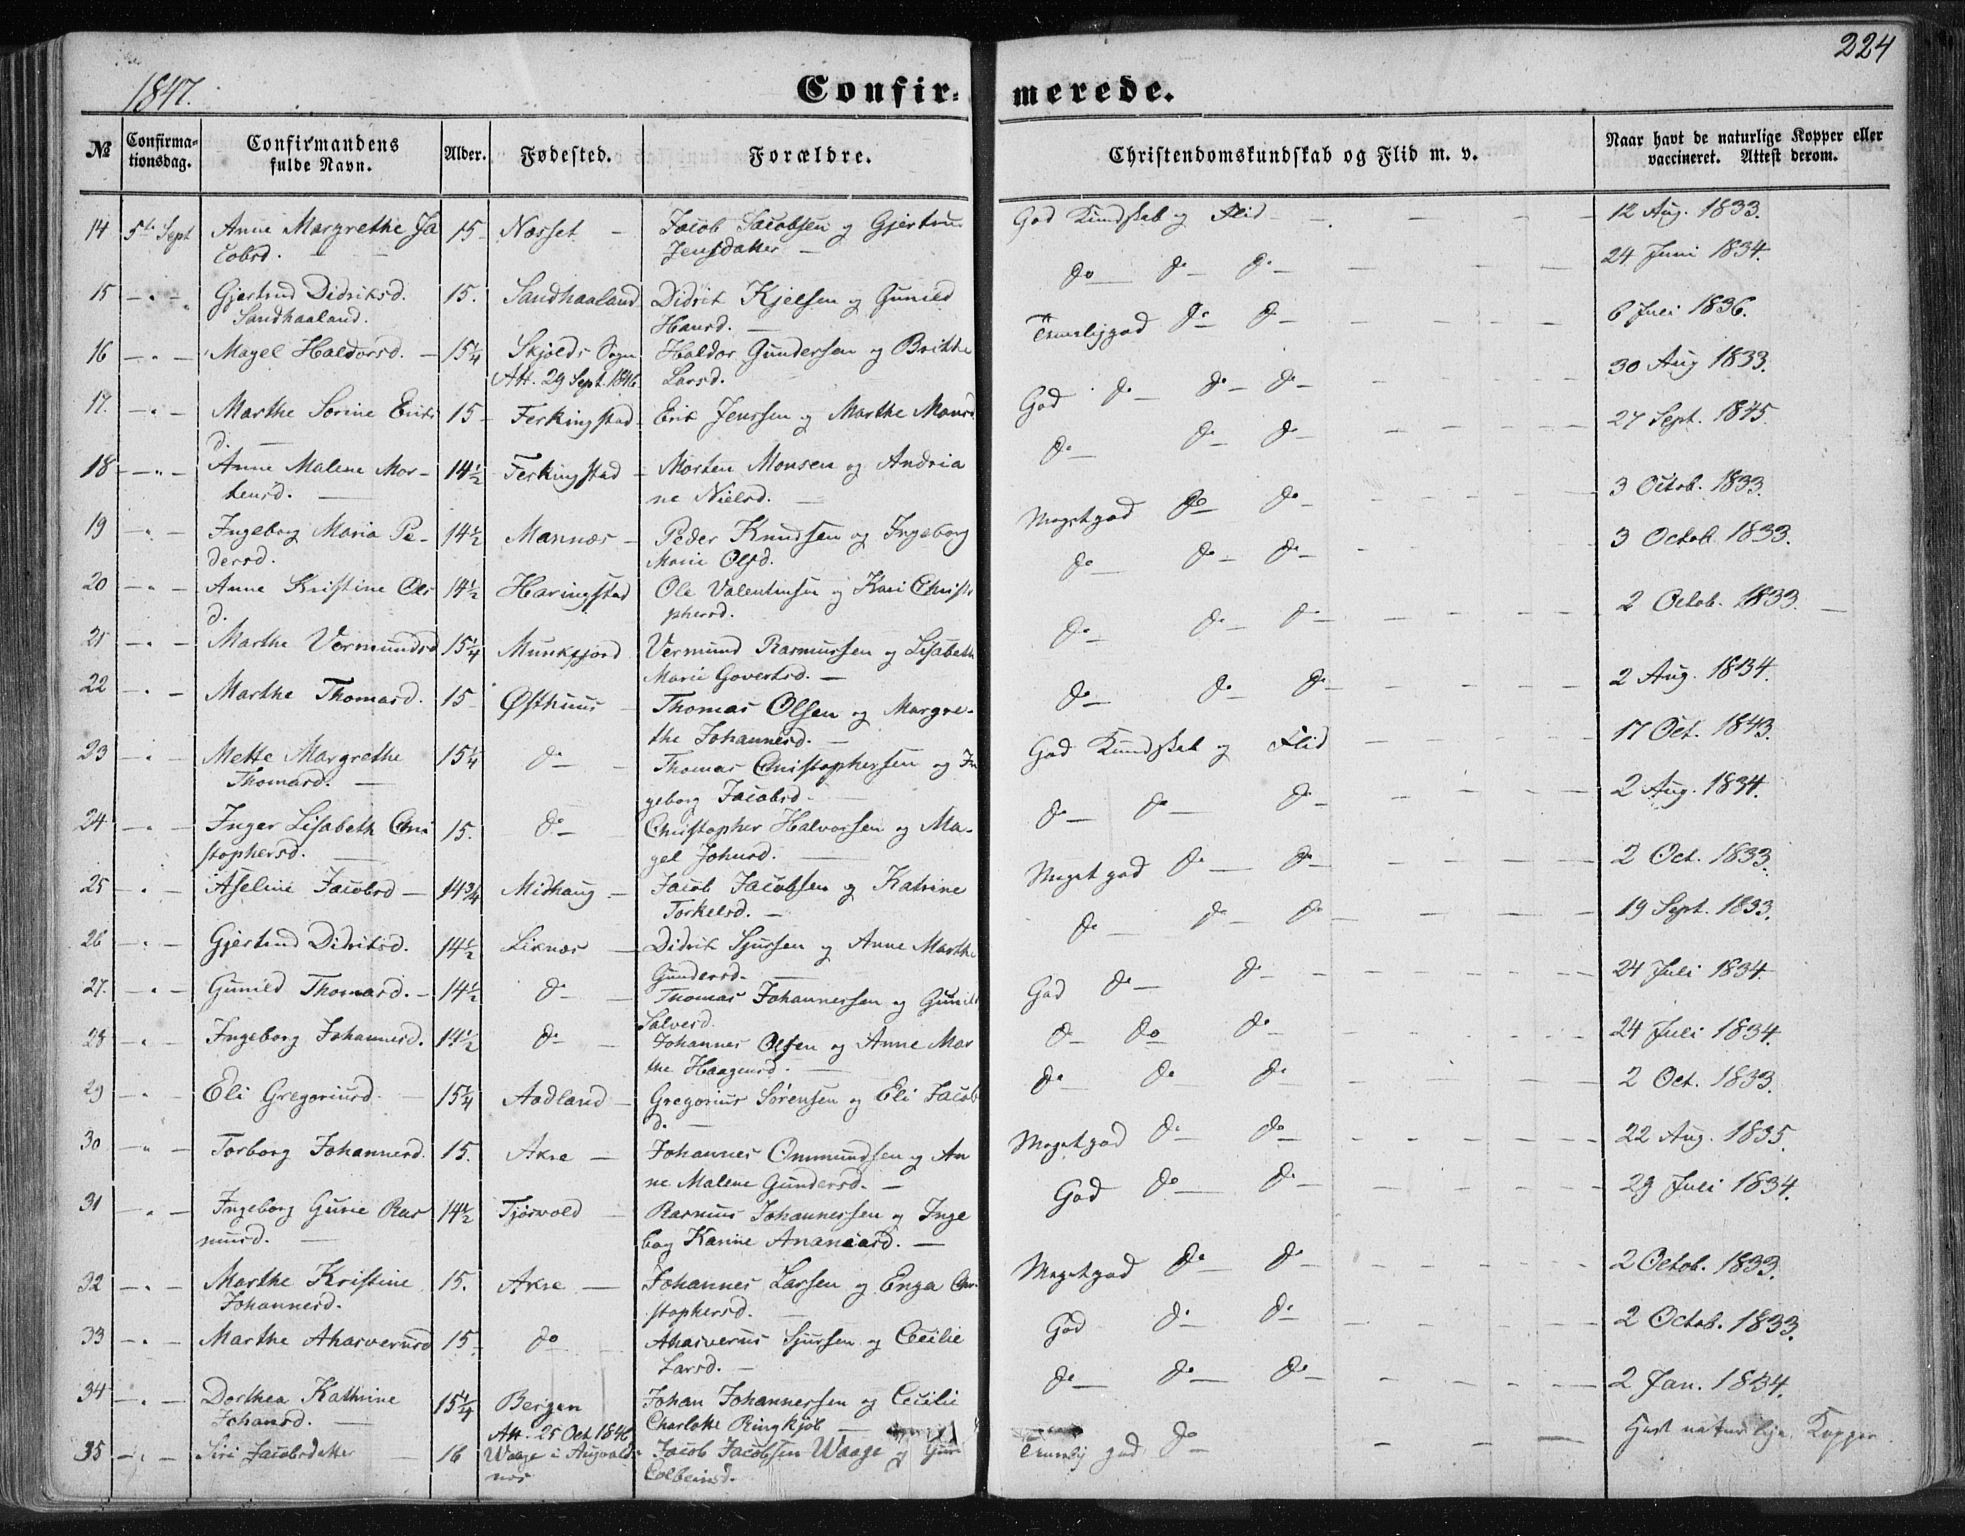 224
1847.
Confir= merede.
№ Confirma= tionsdag. Confirmandens fulde Navn. Alder. Fødested. Forældre. Christendomskundskab og Flid m. v. Naar havt de naturlige Kopper eller vaccineret. Attest derom.
14 5te Sept Anne Margrethe Ja 15 Nosset Jacob Jacobsen og Gjertru God Kundskab og Flid 12 Aug. 1833.
cobsd. Jensdatter
15 Gjertrud Didriksd. 15. Sandhaaland Didrik Kjelsen og Gunild do do do 24 Juni 1834.
Sandhaaland. Hansd.
16 Magel Haldorsd. 15¼ Skjolds Sogn Haldor Gundersen og Britthe Temeliggod do do 6 Juli 1836.
Att. 29 Sept. 1846. Larsd.
17. Marthe Sorine Eriks 15 Ferkingstad Erik Jenssen og Marthe Monsd God do do do 30 Aug 1833.
d.
18 Anne Malene Mor- 14½ Ferkingstad Morten Monsen og Andria do do do 27 Sept. 1845.
tensd. ne Nielsd.
19 Ingeborg Maria Pe- 14½ Mannæs Peder Knudsen og Ingeborg Megetgod do do 3 Octob. 1833.
dersd. Marie Olsd.
20 Anne Kristine Ols 14½ Haringstad Ole Valentinsen og Kari Christo do do do 3 Octob. 1833.
d. phersd.
21 Marthe Vermundsd 15¼ Munkejord Vermund Rasmussen og Lisabeth do do do 2 Octob. 1833.
Marie Govertsd.
22 Marthe Thomasd. 15 Østhuus Thomas Olsen og Margre- do do do 2 Aug. 1834.
the Johannesd.
23 Mette Margrethe 15¼ do Thomas Christophersen og In God Kundskab og Flid 17 Oct. 1843.
Thomasd. geborg Jacobsd.
24 Inger Lisabeth Chri 15. do Christopher Halvorsen og Ma- do do do 2 Aug. 1834.
stophersd. gel Johnsd.
25 Aseline Jacobsd 14¾ Midhaug Jacob Jacobsen og Katrine Meget god do do 2 Oct. 1833.
Torkelsd.
26 Gjertrud Didriksd. 14½ Liknæs Didrik Sjursen og Anne Marthe do do do 19 Sept. 1833.
Gundersd.
27. Gunild Thomasd. 14½ do Thomas Johannessen og Gunild God do do 24 Juli 1834.
Salvesd.
28 Ingeborg Johannesd. 14½ do Johannes Olsen og Anne Mar do do do 24 Juli 1834.
the Haagensd.
29 Eli Gregoriusd. 15¼ Aadland Gregorius Sørensen og Eli Jacob do do do 2 Oct. 1833.
d.
30 Torborg Johannesd. 15. Akre Johannes Ommundsen og An Megetgod do do 22 Aug. 1835.
ne Malene Gundersd.
31 Ingeborg Gurie Ras 14½ Tjøsvold Rasmus Johannessen og Inge God do do 29 Juli 1834.
musd. borg Karine Ananiasd.
32 Marthe Kristine 15. Akre Johannes Larsen og Enga Chri Megetgod do do 2 Octob. 1833.
Johannesd. stophersd.
33 Marthe Ahasverusd 15 do Ahasverus Sjursen og Cecilie God do do 2 Octob. 1833.
Larsd.
34 Dorthea Kathrine 15¼ Bergen Johan Johannessen og Cecilie do do do 2 Jan. 1834.
Johansd. Att. 25 Oct 1846 Charlotte Ringkjøb
35 Siri Jacobsdatter 16 Waage i Augvalds- Jacob Jacobsen Waage og Guri Temelig god do Havt naturlige Kopper
nes Colbeinsd.